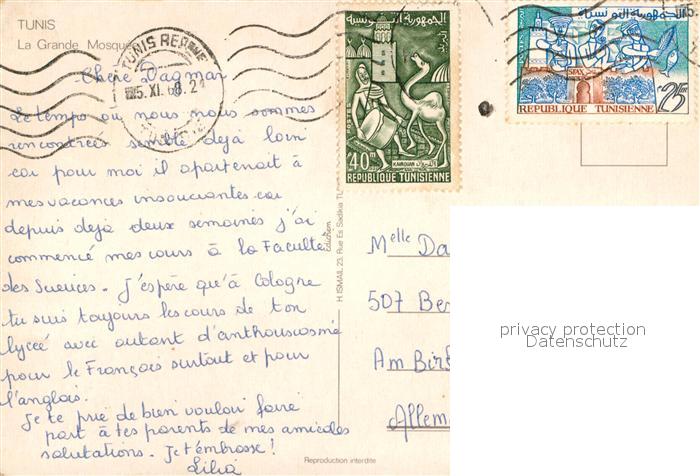 TUNIS
La Grande Mosquée
TUNIS RE
5.XI.68.24
Chère Dagmar
Le temps ou nous nous sommes
rencontrées semble dejà loin
car pour moi il apartenait à
mes vacances insouciantes car
depuis dejà deux semaines j'ai
commencé mes cours à la Faculté
des Sciences. J'espère qu'à Cologne
tu suis toujours les cours de ton
lyceé avec autant d'anthousiasme
pour le Français surtout et pour
l'anglais.
Je te prie de bien vouloir faire
part à tes parents de mes amicales
salutations. Je t'embrasse!
Lilia
H. ISMAIL 23, Rue Es Sadikia TU
Reproduction interdite
الجمهورية التونسية
POSTES
KAIROUAN القيروان
40m
REPUBLIQUE TUNISIENNE
الجمهورية التونسية
SFAX
25m
REPUBLIQUE TUNISIENNE
Melle Da
507 Ber
Am Birk
Allem
privacy protection
Datenschutz